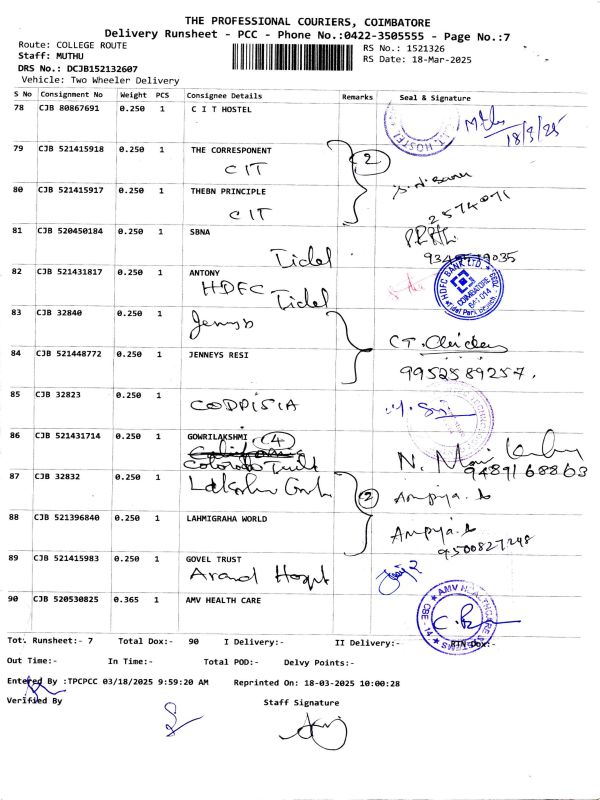 THE PROFESSIONAL COURIERS, COIMBATORE
Delivery Runsheet - PCC - Phone No.:0422-3505555 - Page No.:7
Route: COLLEGE ROUTE
RS No.: 1521326
Staff: MUTHU
RS Date: 18-Mar-2025
DRS No.: DCJB152132607
Vehicle: Two Wheeler Delivery
S No Consignment No Weight PCS Consignee Details Remarks Seal & Signature
78 CJB 80867691 0.250 1 C I T HOSTEL
18/3/25
79 CJB 521415918 0.250 1 THE CORRESPONENT
CIT
2
80 CJB 521415917 0.250 1 THEBN PRINCIPLE
CIT
2574071
81 CJB 520450184 0.250 1 SBNA
Tidel
82 CJB 521431817 0.250 1 ANTONY
HDFC Tidel
HDFC BANK LTD.
COIMBATORE
641 014
83 CJB 32840 0.250 1
Jennys
84 CJB 521448772 0.250 1 JENNEYS RESI
9952589257.
85 CJB 32823 0.250 1
CODDISIA
86 CJB 521431714 0.250 1 GOWRILAKSHMI 4
N. Mani
9489168863
87 CJB 32832 0.250 1
2
88 CJB 521396840 0.250 1 LAHMIGRAHA WORLD
9500827248
89 CJB 521415983 0.250 1 GOVEL TRUST
90 CJB 520530825 0.365 1 AMV HEALTH CARE
Tot. Runsheet:- 7 Total Dox:- 90 I Delivery:- II Delivery:- RTN Dox:-
Out Time:- In Time:- Total POD:- Delvy Points:-
Entered By :TPCPCC 03/18/2025 9:59:20 AM Reprinted On: 18-03-2025 10:00:28
Verified By Staff Signature